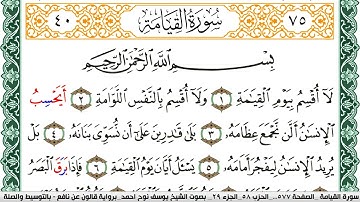 ٧٥ سُورَةُ الْقِيَامَةِ ٤٠
بِسْمِ اللَّهِ الرَّحْمَٰنِ الرَّحِيمِ
لَا أُقْسِمُ بِيَوْمِ الْقِيَٰمَةِ ١ وَلَا أُقْسِمُ بِالنَّفْسِ اللَّوَّامَةِ ٢ أَيَحْسِبُ
الْإِنسَٰنُ أَلَّن نَّجْمَعَ عِظَامَهُ ٣ بَلَىٰ قَٰدِرِينَ عَلَىٰ أَن نُّسَوِّيَ بَنَانَهُ ٤ بَلْ
يُرِيدُ الْإِنسَٰنُ لِيَفْجُرَ أَمَامَهُ ٥ يَسْـَٔلُ أَيَّانَ يَوْمُ الْقِيَٰمَةِ ٦ فَإِذَا بَرَقَ الْبَصَرُ
سورة القيامة _ الصفحة ٥٧٧ _ الحزب ٥٨ _ الجزء ٢٩ _ بصوت الشيخ يوسف نوح احمد _ برواية قالون عن نافع - بالتوسيط والصلة